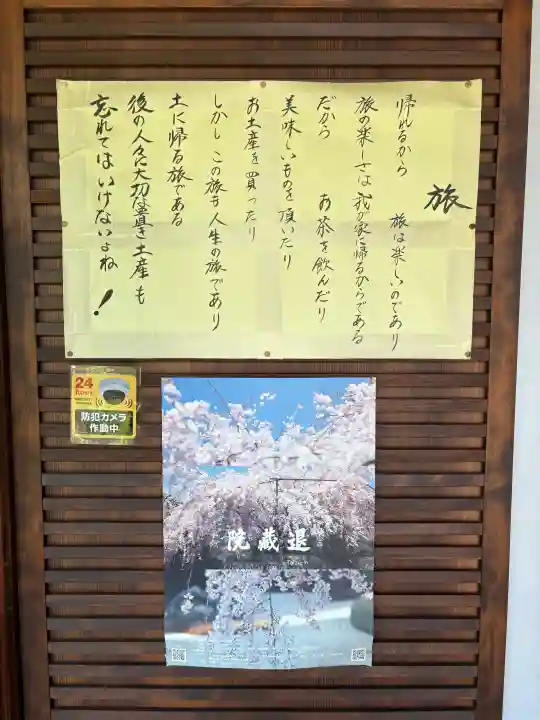 旅
帰れるから 旅は楽しいのであり
旅の楽しさは 我が家に帰るからである
だから お茶を飲んだり
美味しいものを頂いたり
お土産を買ったり
しかし この旅も 人生の旅であり
土に帰る旅である
後の人々に大切な置き土産も
忘れてはいけないよね!
24
hours
防犯カメラ
作動中
退蔵院
Taizo-in